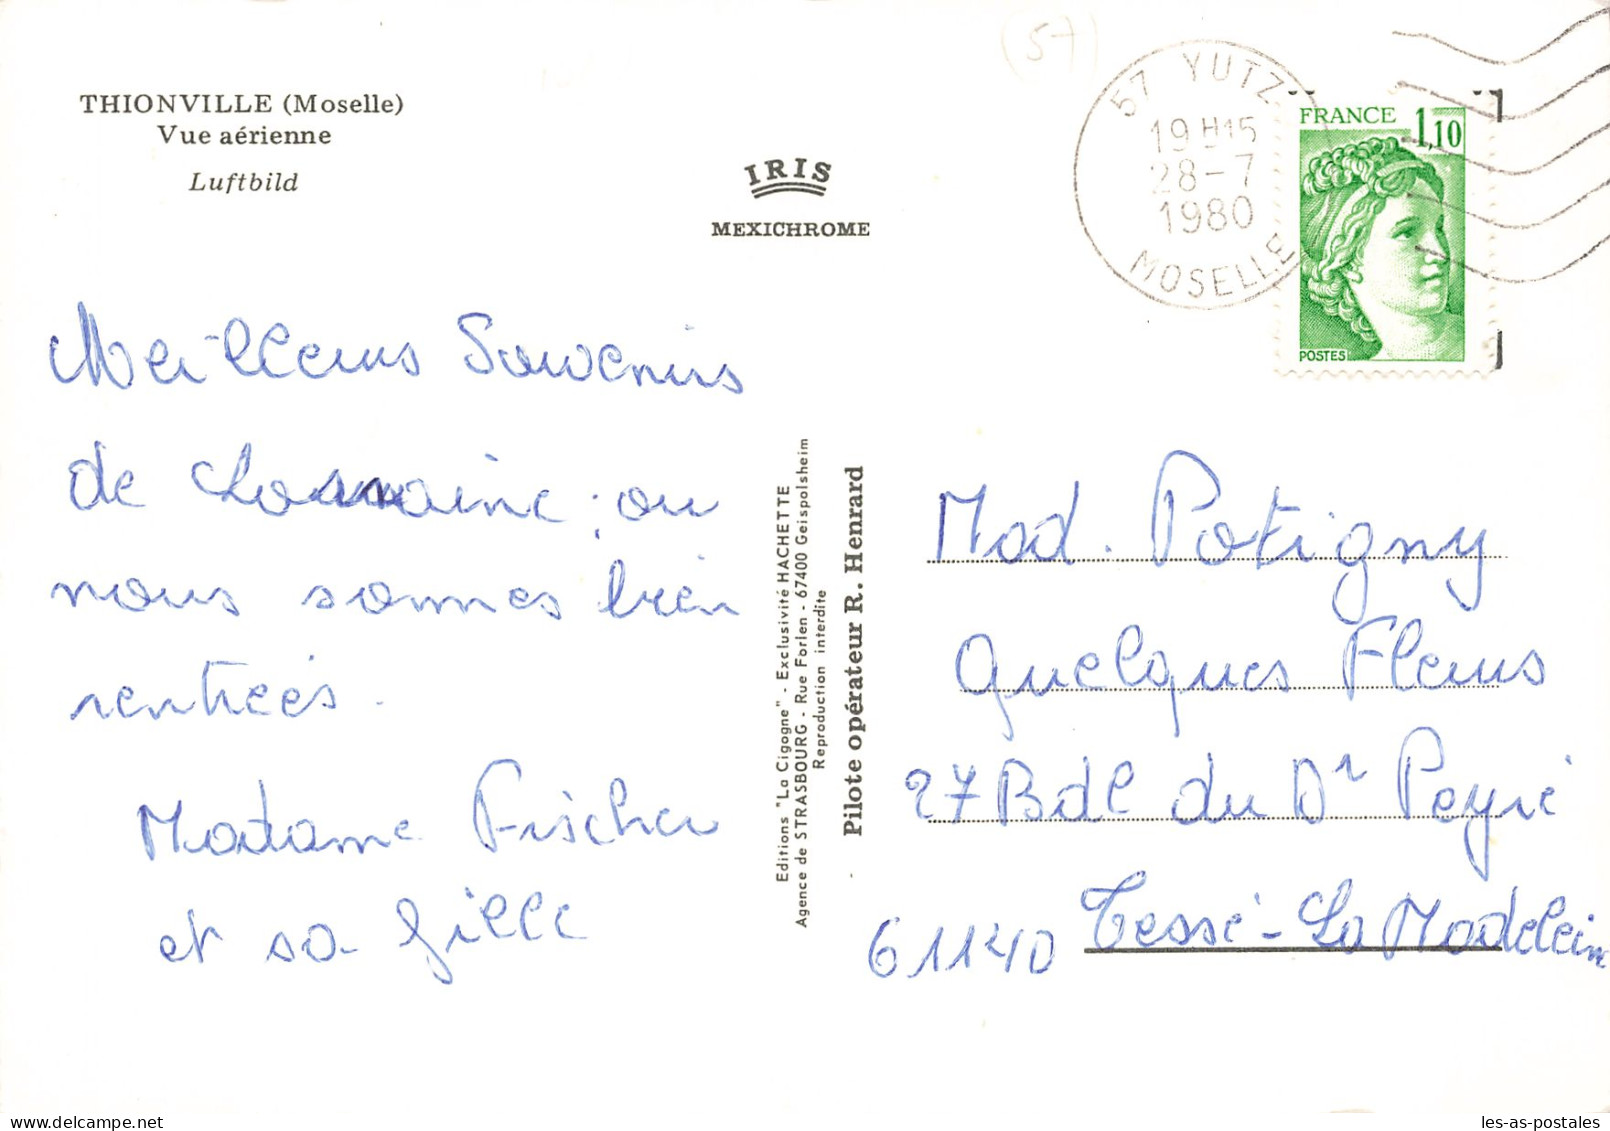 THIONVILLE (Moselle)
Vue aérienne
Luftbild
IRIS
MEXICHROME
(57)
57 YUTZ
19H15
28-7
1980
MOSELLE
FRANCE 1,10
POSTES
Meilleurs Souvenirs
de Lorraine, ou
nous sommes bien
rentrées.
Madame Fischer
et sa fille
Editions "La Cigogne" - Exclusivité HACHETTE
Agence de STRASBOURG - Rue Forlen - 67400 Geispolsheim
Reproduction interdite
Pilote opérateur R. Henrard
Mad. Potigny
Quelques Fleurs
27 Bdl du Dr Peyré
61140 Tessé-La Madelein
les-as-postales